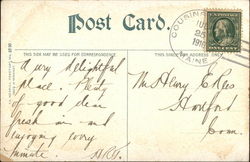 Post Card.
COUSINS
MAINE
THIS SIDE MAY BE USED FOR CORRESPONDENCE
THIS SIDE IS FOR THE ADDRESS
A very delightful
place. Plenty
of good clean
fresh air and
enjoying every
minute
Mr Henry C Rees
Hartford
Conn.